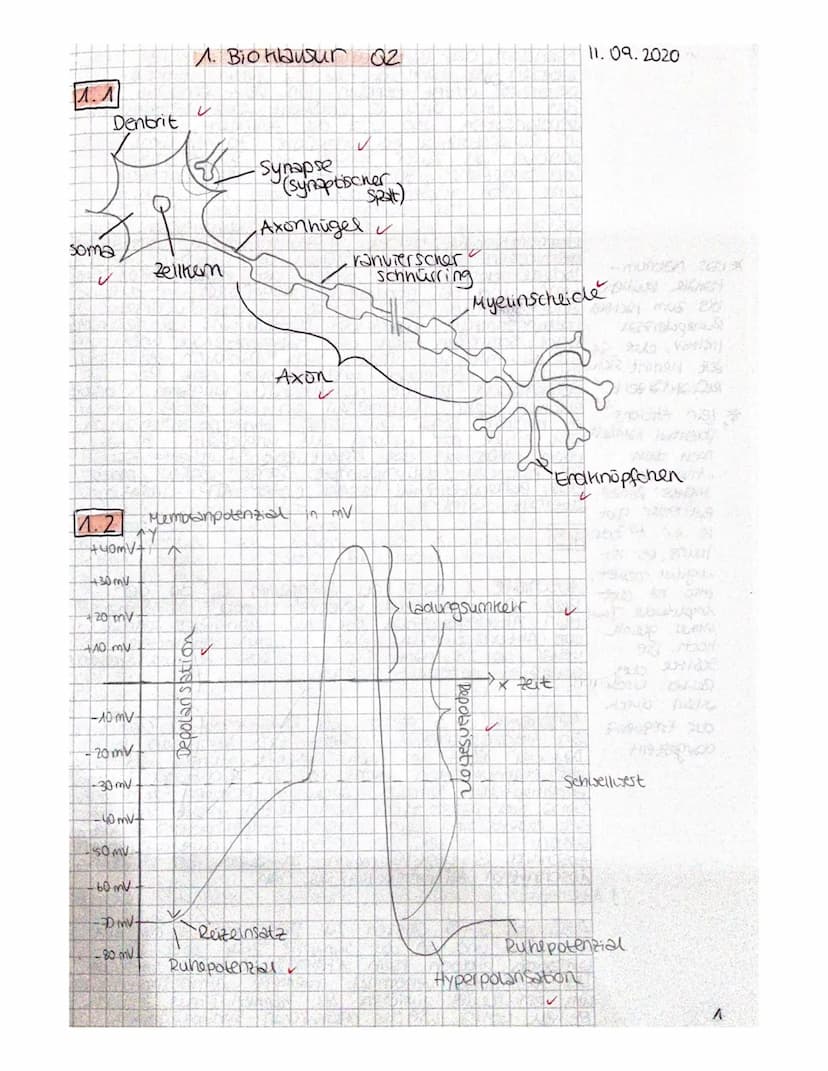 1. Bioklausur Q2
11.09.2020
1.1
Dentrit
Synapse
(synaptischer
Spalt)
Axonhügel
soma
Zellkern
ranvierscher
schnürring
Myelinscheide
Axon
Endknöpfchen
1.2
Membranpotenzial in mV
y
+40mV
+30 mV
+20 mV
+10 mV
Ladungsumkehr
Depolarisation
x Zeit
Repolarisation
-10 mV
-20 mV
-30 mV
Schwellwert
-40 mV
-50 mV
-60 mV
-70 mV
-80 mV
Reizeinsatz
Ruhepotenzial
Ruhepotenzial
Hyperpolarisation
1